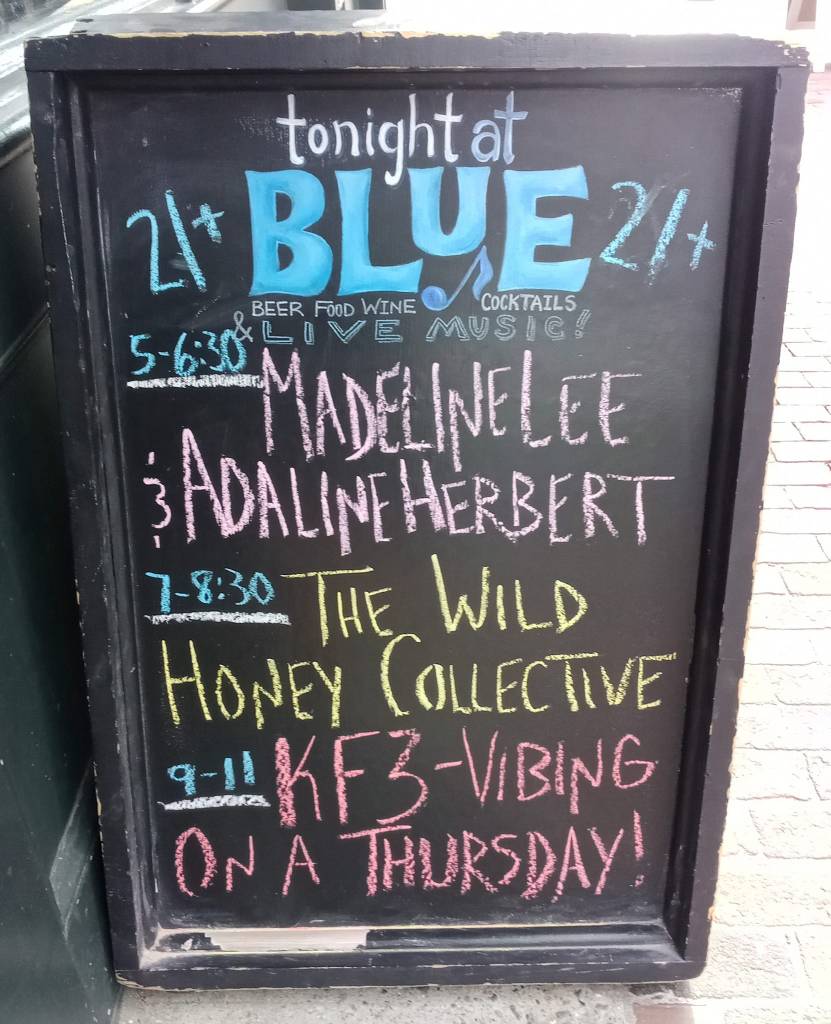 tonight at
21+ BLUE 21+
BEER FOOD WINE COCKTAILS
& LIVE MUSIC!
5-6:30 MADELINE LEE
& ADALINE HERBERT
7-8:30 THE WILD
HONEY COLLECTIVE
9-11 KF3-VIBING
ON A THURSDAY!